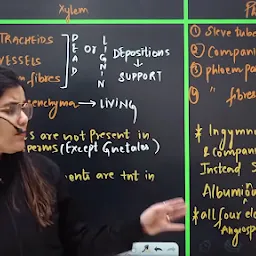 Xylem
TRACHEIDS
VESSELS
fibres
DEAD
or
LIGNIN
DEPOSITIONS
SUPPORT
LIVING
s are not Present in
(Except Gnetales)
ents are not in
① Sieve tub
② Compani
③ phloem pa
fibres
* In gymn
& compani
Instead S
Albumino
* all four el
Angiosp